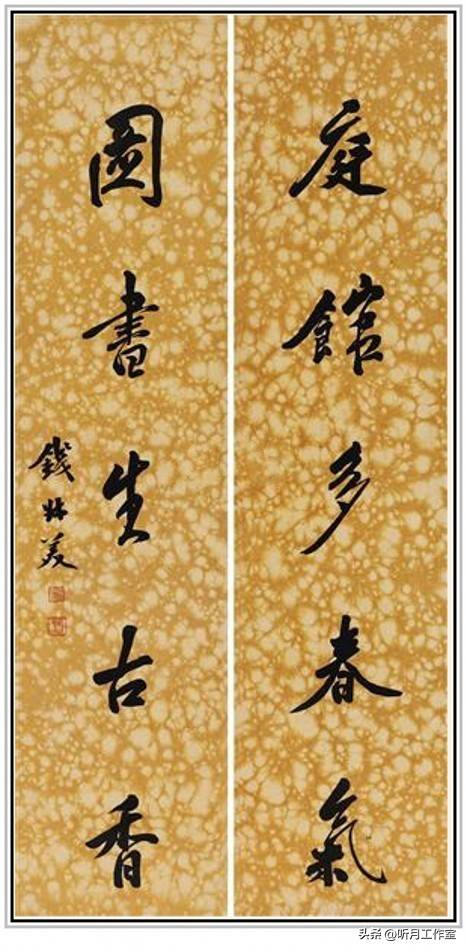 庭館多春氣
圖書生古香
錢
头条@听月工作室